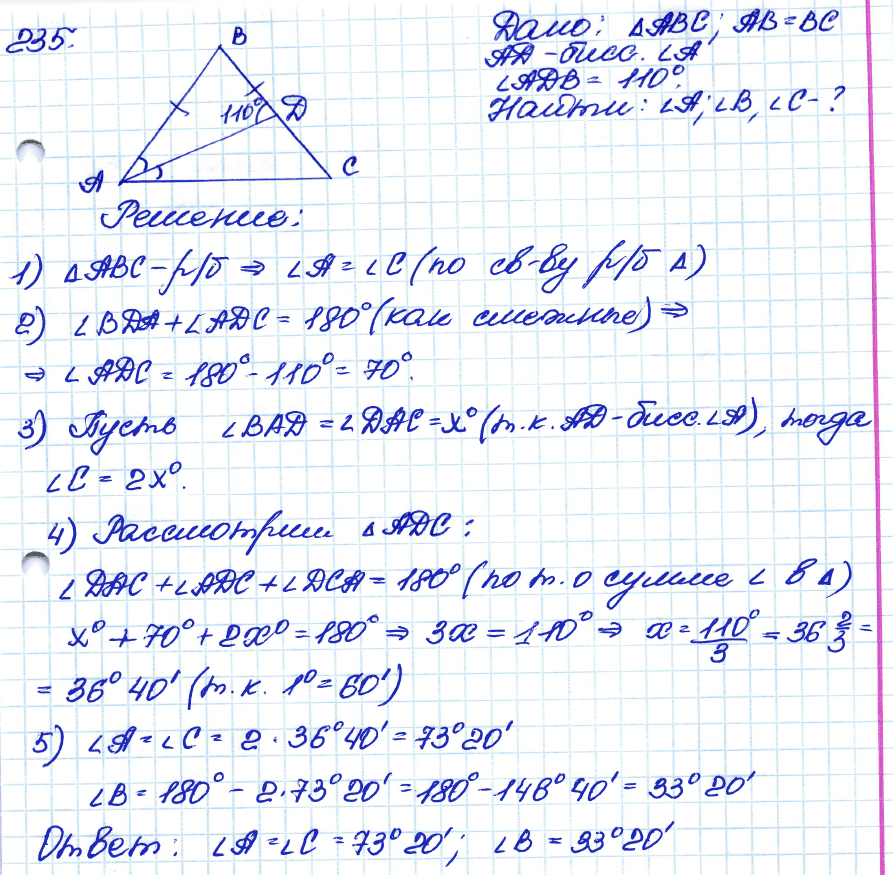 235.
Дано: △ABC; AB = BC
AD - бисс. ∠A
∠ADB = 110°.
Найти: ∠A; ∠B, ∠C - ?
B
110°
D
A
C
Решение:
1) △ABC - р/б ⇒ ∠A = ∠C (по св-ву р/б △)
2) ∠BDA + ∠ADC = 180° (как смежные) ⇒
⇒ ∠ADC = 180° - 110° = 70°.
3) Пусть ∠BAD = ∠DAC = x° (т.к. AD - бисс. ∠A), тогда
∠C = 2x°.
4) Рассмотрим △ADC:
∠DAC + ∠ADC + ∠DCA = 180° (по т. о сумме ∠ в △)
x° + 70° + 2x° = 180° ⇒ 3x = 110° ⇒ x = 110°/3 = 36 2/3 =
= 36° 40' (т.к. 1° = 60')
5) ∠A = ∠C = 2 · 36° 40' = 73° 20'
∠B = 180° - 2 · 73° 20' = 180° - 146° 40' = 33° 20'
Ответ: ∠A = ∠C = 73° 20'; ∠B = 33° 20'